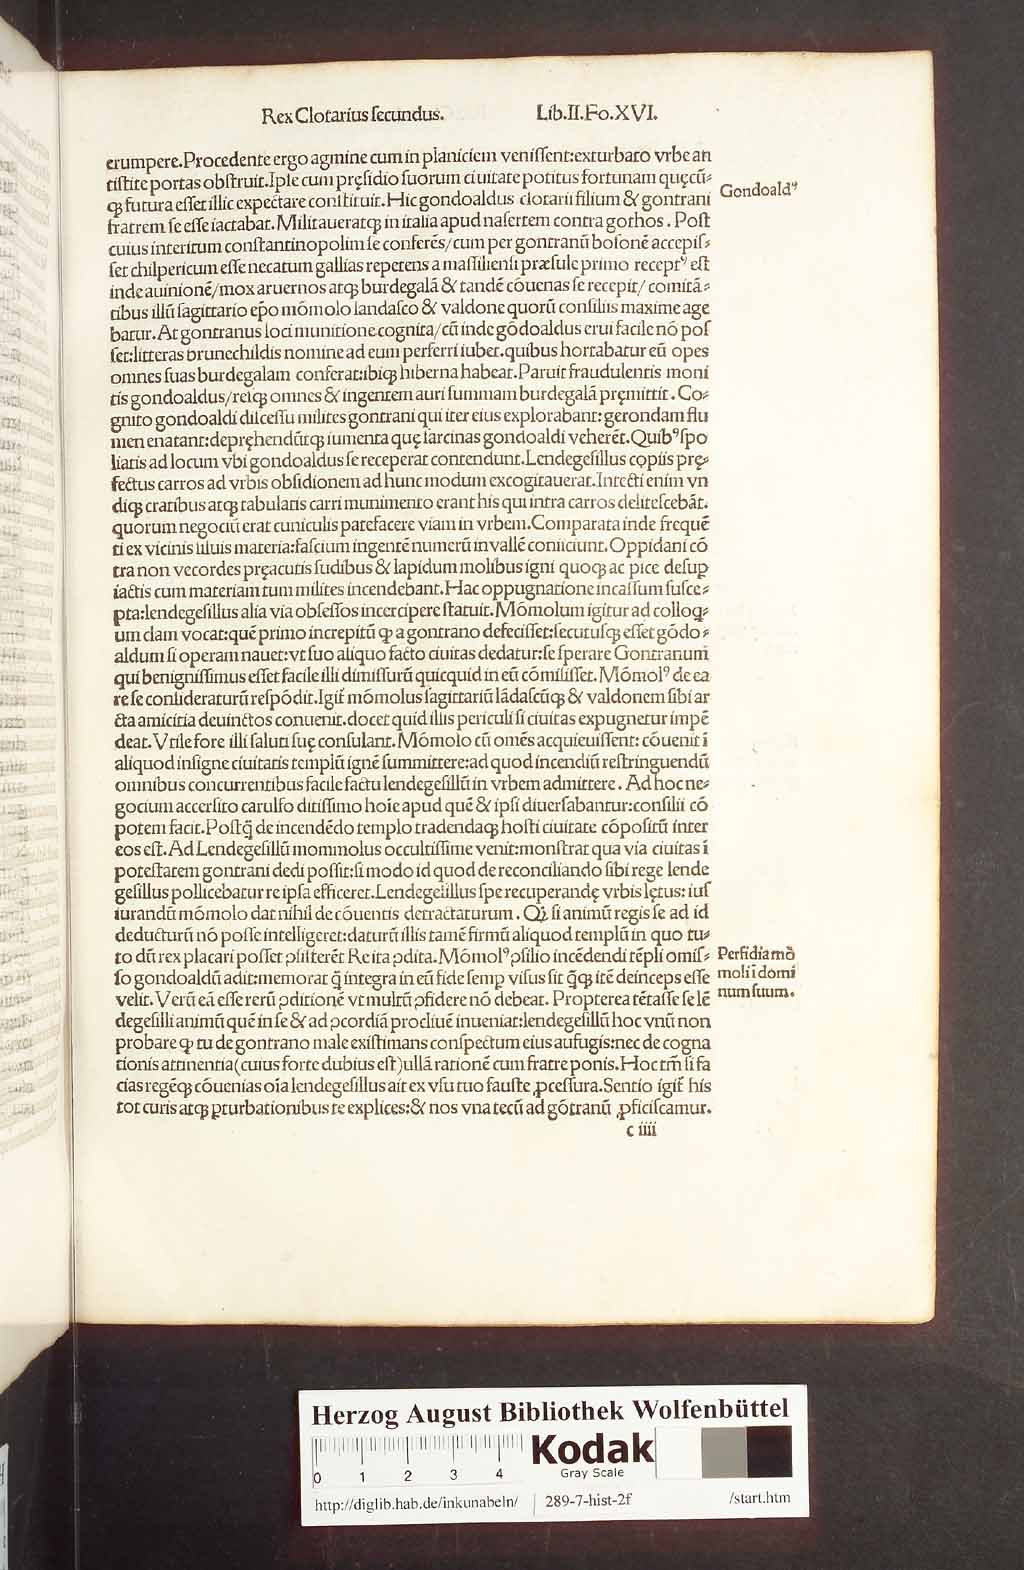 Rex Clotarius ſecundus. Lib.II.Fo.XVI.
erumpere.Procedente ergo agmine cum in planiciem veniſſent:exturbato vrbe an
tiſtite portas obſtruit.Ipſe cum pręſidio ſuorum ciuitate potitus fortunam quęcū⸗
qꝫ futura eſſet illic expectare conſtituit.Hic gondoaldus clotarii filium & gontrani
fratrem ſe eſſe iactabat.Militaueratqꝫ in italia apud naſertem contra gothos. Poſt
cuius interitum conſtantinopolim ſe conferēs/cum per gontranū boſonē accepiſ⸗
ſet chilpericum eſſe necatum gallias repetens a maſſilienſi præſule primo receptꝰ eſt
inde auinionē/mox aruernos atqꝫ burdegalā & tandē cōuenas ſe recepit/ comitā⸗
tibus illū ſagittario ep̄o mōmolo landaſco & valdone quorū conſiliis maxime age
batur.At gontranus loci munitione cognita/cū inde gōdoaldus erui facile nō poſ
ſet:litteras brunechildis nomine ad eum perferri iubet.quibus hortabatur eū opes
omnes ſuas burdegalam conferat:ibiqꝫ hiberna habeat.Paruit fraudulentis moni
tis gondoaldus/reſqꝫ omnes & ingentem auri ſummam burdegalā pręmittit. Co⸗
gnito gondoaldi diſceſſu milites gontrani qui iter eius explorabant:gerondam flu
men enatant:depręhendūtqꝫ iumenta quę ſarcinas gondoaldi veherēt.Quibꝰ ſpo
liatis ad locum vbi gondoaldus ſe receperat contendunt.Lendegeſillus copiis prę⸗
fectus carros ad vrbis obſidionem ad hunc modum excogitauerat.Intecti enim vn
diqꝫ cratibus atqꝫ tabulatis carri munimento erant his qui intra carros deliteſcebāt.
quorum negociū erat cuniculis patefacere viam in vrbem.Comparata inde frequē
ti ex vicinis ſiluis materia:faſcium ingentē numerū in vallē coniiciunt.Oppidani cō
tra non vecordes pręacutis ſudibus & lapidum molibus igni quoqꝫ ac pice deſuꝑ
iactis cum materiam tum milites incendebant.Hac oppugnatione incaſſum ſuſce⸗
pta:lendegeſillus alia via obſeſſos intercipere ſtatuit.Mōmolum igitur ad colloq⸗
um clam vocat:quē primo increpitū ꝙ a gontrano defeciſſet:ſecutuſqꝫ eſſet gōdo⸗
aldum ſi operam nauet:vt ſuo aliquo facto ciuitas dedatur:ſe ſperare Gontranum
qui benigniſſimus eſſet facile illi dimiſſurū quicquid in eū cōmiſiſſet.Mōmolꝰ de ea
re ſe conſideraturū reſpōdit.Igit̄ mōmolus ſagittariū lādaſcūqꝫ & valdonem ſibi ar
cta amicitia deuinctos conuenit.docet quid illis periculi ſi ciuitas expugnetur impē
deat.Vtile fore illi ſaluti ſuę conſulant.Mōmolo cū omēs acquieuiſſent: cōuenit ī
aliquod inſigne ciuitatis templū ignē ſummittere:ad quod incendiū reſtringuendū
omnibus concurrentibus facile factu lendegeſillū in vrbem admittere. Ad hoc ne⸗
gocium accerſito carulfo ditiſſimo hoīe apud quē & ipſi diuerſabantur:conſilii cō
potem facit.Poſtq̄ de incendēdo templo tradendaqꝫ hoſti ciuitate cōpoſitū inter
eos eſt.Ad Lendegeſillū mommolus occultiſſime venit:monſtrat qua via ciuitas ī
poteſtatem gontrani dedi poſſit:ſi modo id quod de reconciliando ſibi rege lende
geſillus pollicebatur re ipſa efficeret.Lendegeſillus ſpe recuperandę vrbis lętus: iuſ
iurandū mōmolo dat nihil de cōuentis detractaturum. Qꝫ ſi animū regis ſe ad id
deducturū nō poſſe intelligeret:daturū illis tamē firmū aliquod templū in quo tu⸗
to dū rex placari poſſet ꝓſiſterēt Re ita ꝓdita.Mōmolꝰ ꝯſilio incēdendi tēpli omiſ⸗
ſo gondoaldū adit:memorat q̄ integra in eū fide ſemꝑ viſus ſit q̄qꝫ itē deinceps eſſe
velit.Verū eā eſſe rerū ꝯditionē vt multū ꝯfidere nō debeat. Propterea tētaſſe ſe lē
degeſilli animū quē in ſe & ad ꝯcordiā procliuē inueniat:lendegeſillū hoc vnū non
probare ꝙ tu de gontrano male exiſtimans conſpectum eius aufugis:nec de cogna
tionis attinentia(cuius forte dubius eſt)ullā rationē cum fratre ponis.Hoc tm̄ ſi fa
cias regēqꝫ cōuenias oīa lendegeſillus ait ex vſu tuo fauſte ꝓceſſura.Sentio igit̄ his
tot curis atqꝫ ꝑturbationibus te explices:& nos vna tecū ad gōtranū ꝓficiſcamur.
c iiii
Gondoaldꝰ
Perfidia mō
moli ī domi
num ſuum.
Herzog August Bibliothek Wolfenbüttel
0 1 2 3 4
Kodak
Gray Scale
http://diglib.hab.de/inkunabeln/ 289-7-hist-2f /start.htm